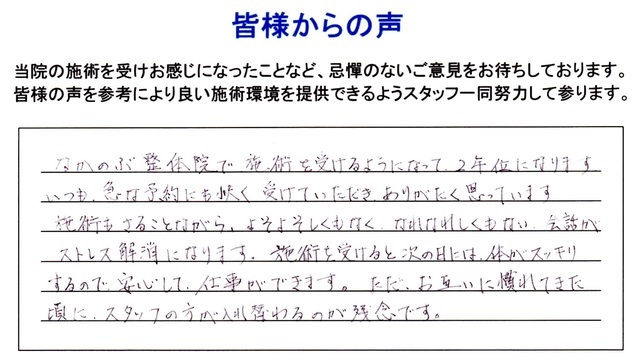 皆様からの声
当院の施術を受けお感じになったことなど、忌憚のないご意見をお待ちしております。
皆様の声を参考により良い施術環境を提供できるようスタッフ一同努力して参ります。
なかのぶ整体院で施術を受けるようになって、2年位になります
いつも、急な予約にも快く受けていただきありがたく思っています
施術もさることながら、よそよそしくもなく、なれなれしくもない、会話が
ストレス解消になります。施術を受けると次の日には、体がスッキリ
するので安心して、仕事ができます。ただ、お互いに慣れてきた
頃に、スタッフの方が入れ替わるのが残念です。